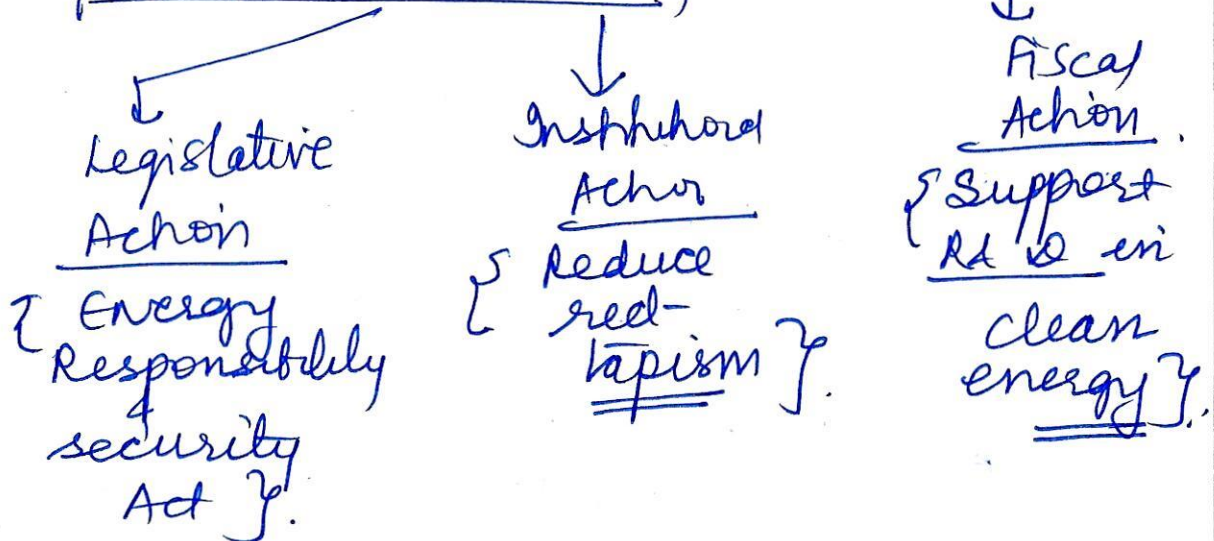 Legislative
Action
{ Energy
Responsibility
&
security
Act }.
Institutional
Action
{ Reduce
red-
tapism }.
Fiscal
Action.
{ Support
R & D in
clean
energy }.